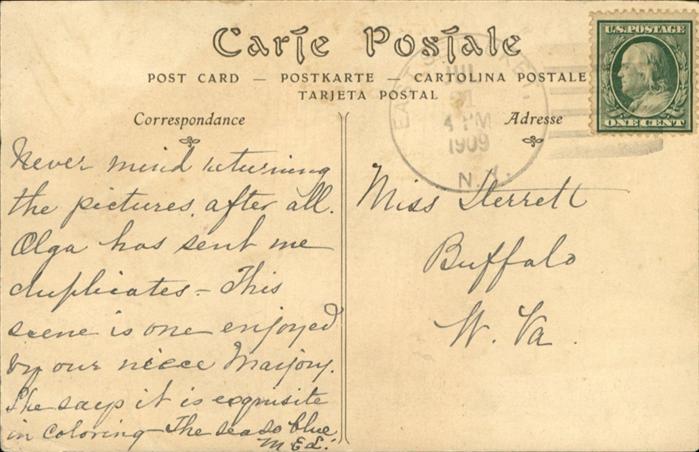 Carte Postale
POST CARD — POSTKARTE — CARTOLINA POSTALE
TARJETA POSTAL
U.S. POSTAGE
ONE CENT
4 PM
1909
N.Y.
Correspondance
Never mind returning
the pictures, after all.
Olga has sent me
duplicates – This
scene is one enjoyed
by our niece Marjory.
She says it is exquisite
in coloring – The sea so blue
Adresse
Miss Sterrett
Buffalo
W. Va.